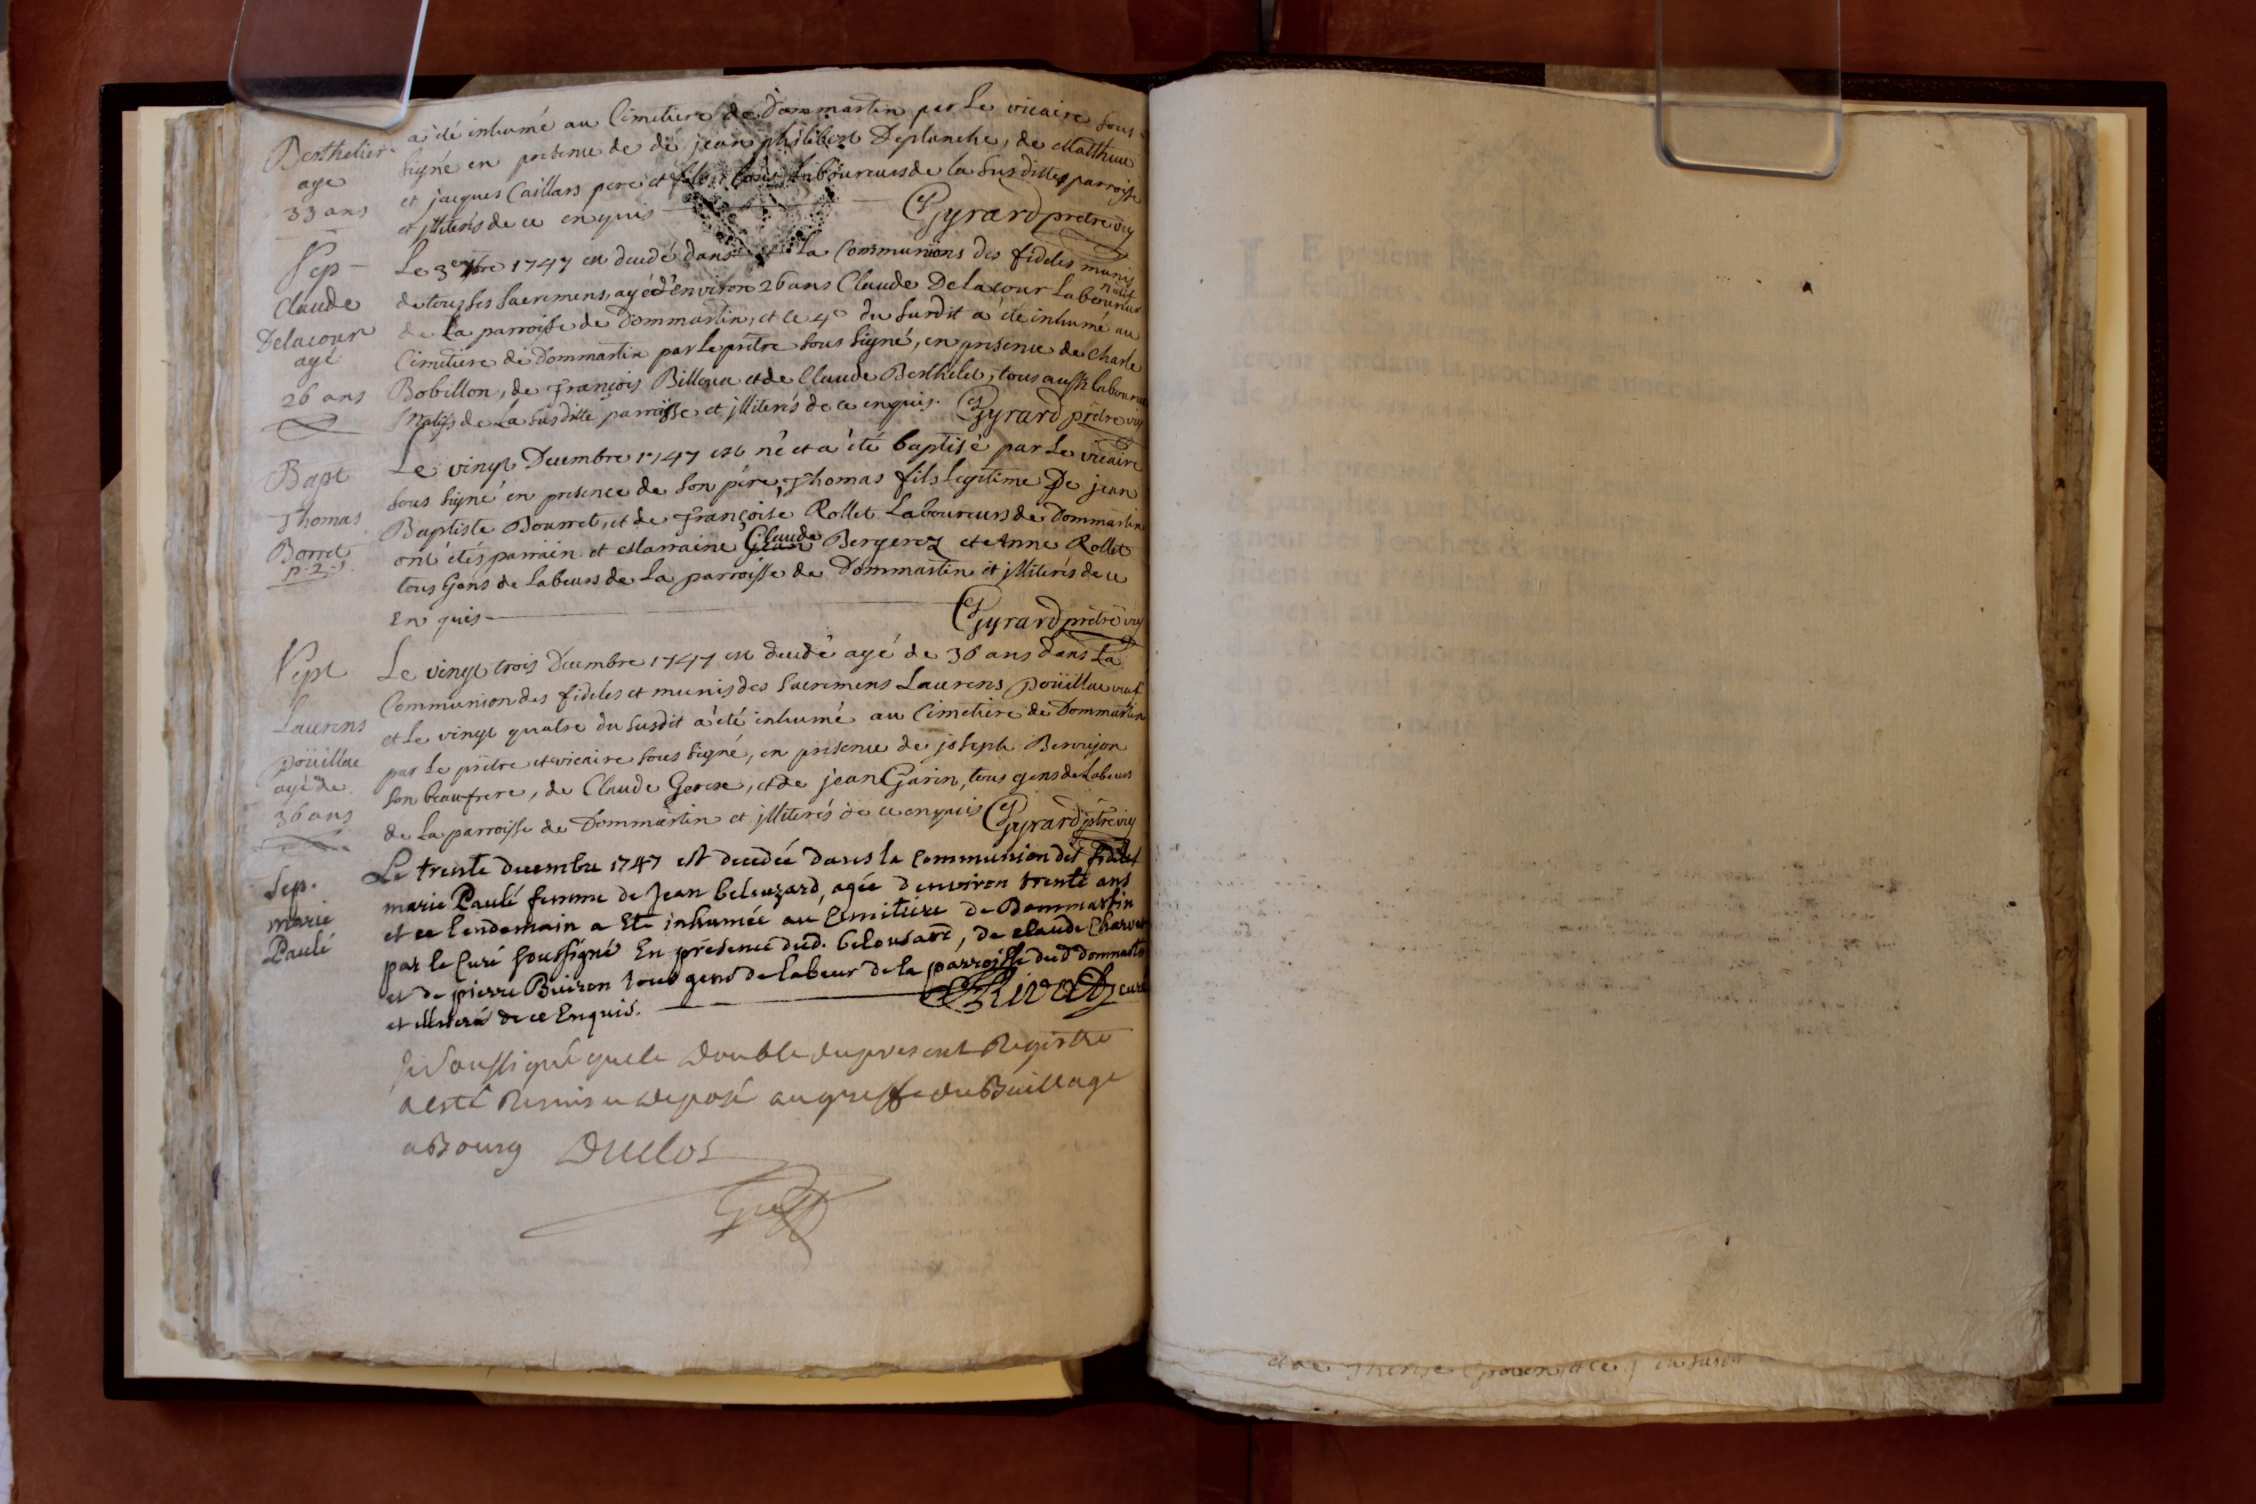 Berthelier
age
33 ans
a été inhumé au Cimetiere de Dommartin par Le vicaire sous
signé en presence de de jean philibert Deplanche, de Matthieu
et jacques Caillars pere et fils tous Laboureurs de la susditte parroisse
et jlliterés de ce enquis
Gyrard pretre vic
Sep
Claude
Delacour
agé
26 ans
Le 3e 1747 est decedé dans la Communions des fideles munis
de tous ses sacremens, agé d'environ 26 ans Claude Delacour Laboureur natif
de La parroisse de Dommartin, et le 4e du susdit a été inhumé au
Cimetiere de Dommartin par le prêtre sous signé, en presence de Charle
Bobillon, de françois Billoux et de Claude Berthelet, tous aussi laboureurs
Natifs de La susditte parroisse et jlliterés de ce enquis. Gyrard prêtre vic
Bapt
Thomas
Borret
p. 2. s.
Le vingt Decembre 1747 est né et a été baptisé par Le vicaire
sous signé en presence de son père, Thomas fils legitime De jean
Baptiste Bourret, et de françoise Rollet Laboureurs de Dommartin
ont étés parrain et Marraine Claude Bergerez et Anne Rollet
tous Gens de Labeurs de La parroisse de Dommartin et jlliterés de ce
enquis
Gyrard prêtre vic
Sept
Laurens
poüillae
agé de
36 ans
Le vingt trois Decembre 1747 est decedé agé de 36 ans dans La
Communion des fideles et munis des sacremens Laurens poüillae
et Le vingt quatre du susdit a été inhumé au Cimetiere de Dommartin
par Le prêtre et vicaire sous signé, en presence de joseph Bervijon
son beaufrere, de Claude et de jean Garin, tous gens de Labeurs
de La parroisse de Dommartin et jlliterés de ce enquis Gyrard ptre vic
Sep.
marie
Paulé
Le trente decembre 1747 est decedée dans la communion des fideles
marie Paulé femme de Jean belouzard, agée d environ trente ans
et le lendemain a Eté inhumée au Cimitiere de Dommartin
par le Curé soussigné En présence dud. belousard, de claude Charvet
et de pierre Buiron tous gens de labeur de la parroisse dud dommartin
et illiteré de ce Enquis.
Rivod curé
Je soussigné que le Double du present Registre
a esté Remis et deposé au greffe du Bailliage
a Bourg Duclos
Greff